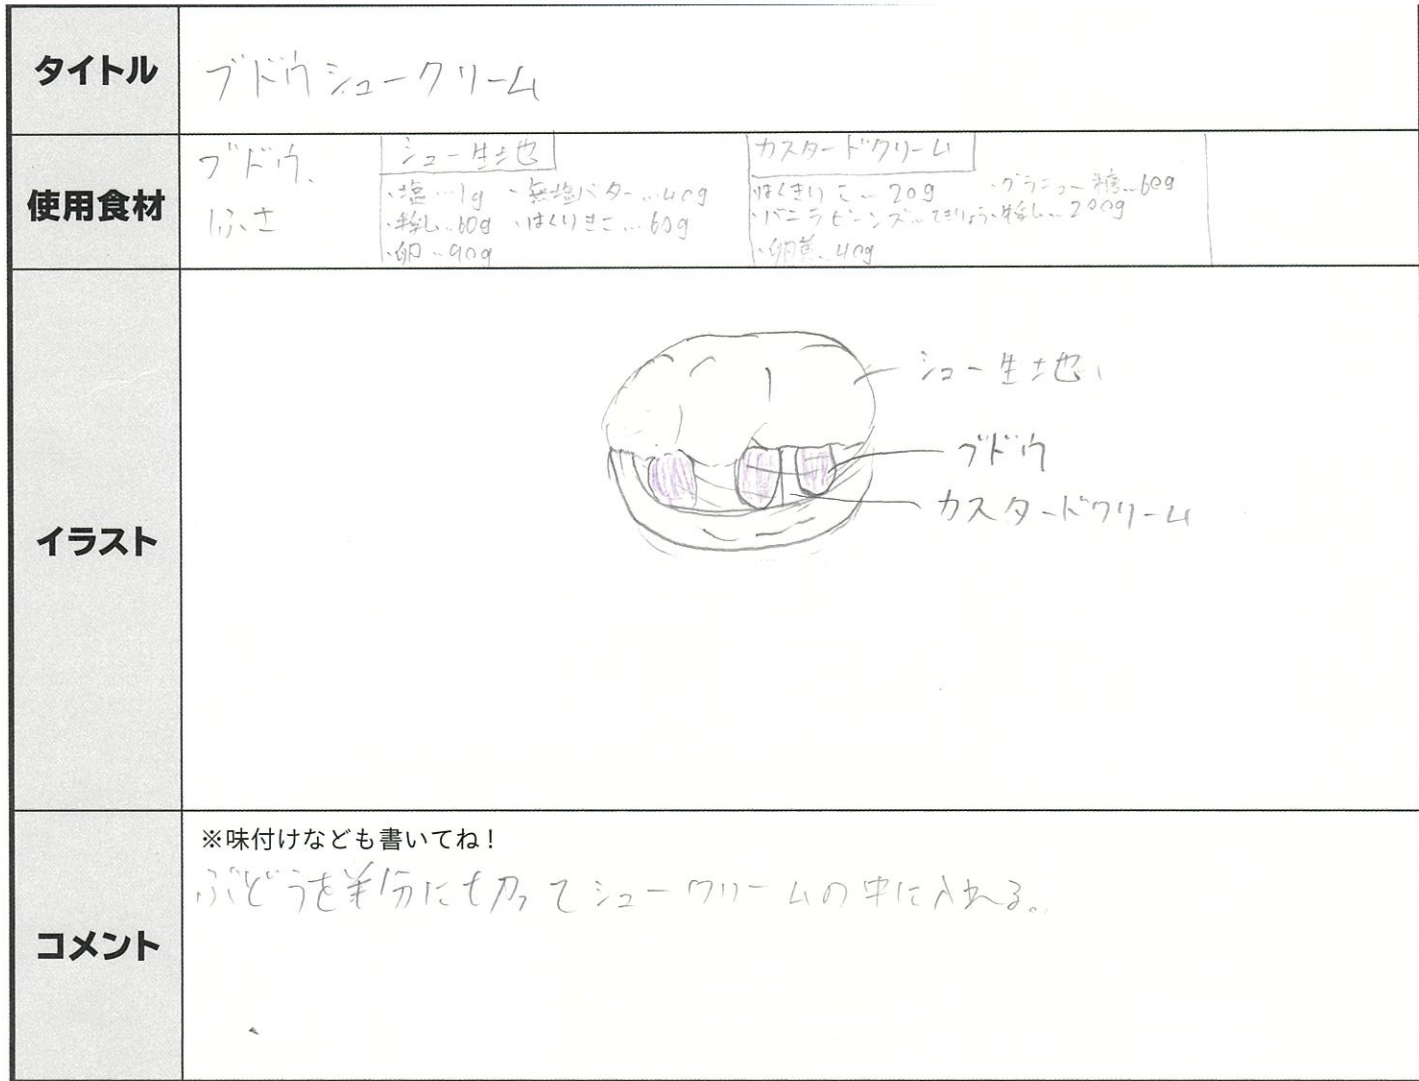 タイトル
ブドウシュークリーム
使用食材
ブドウ、
1ふさ
シュー生地
・塩…1g ・無塩バター…40g
・牛乳…60g ・はくりきこ…60g
・卵…90g
カスタードクリーム
はくきりこ…20g ・グラニュー糖…60g
・バニラビーンズ…てきりょう・牛乳…200g
・卵黄…40g
イラスト
シュー生地
ブドウ
カスタードクリーム
コメント
※味付けなども書いてね！
ぶどうを半分に切ってシュークリームの中に入れる。